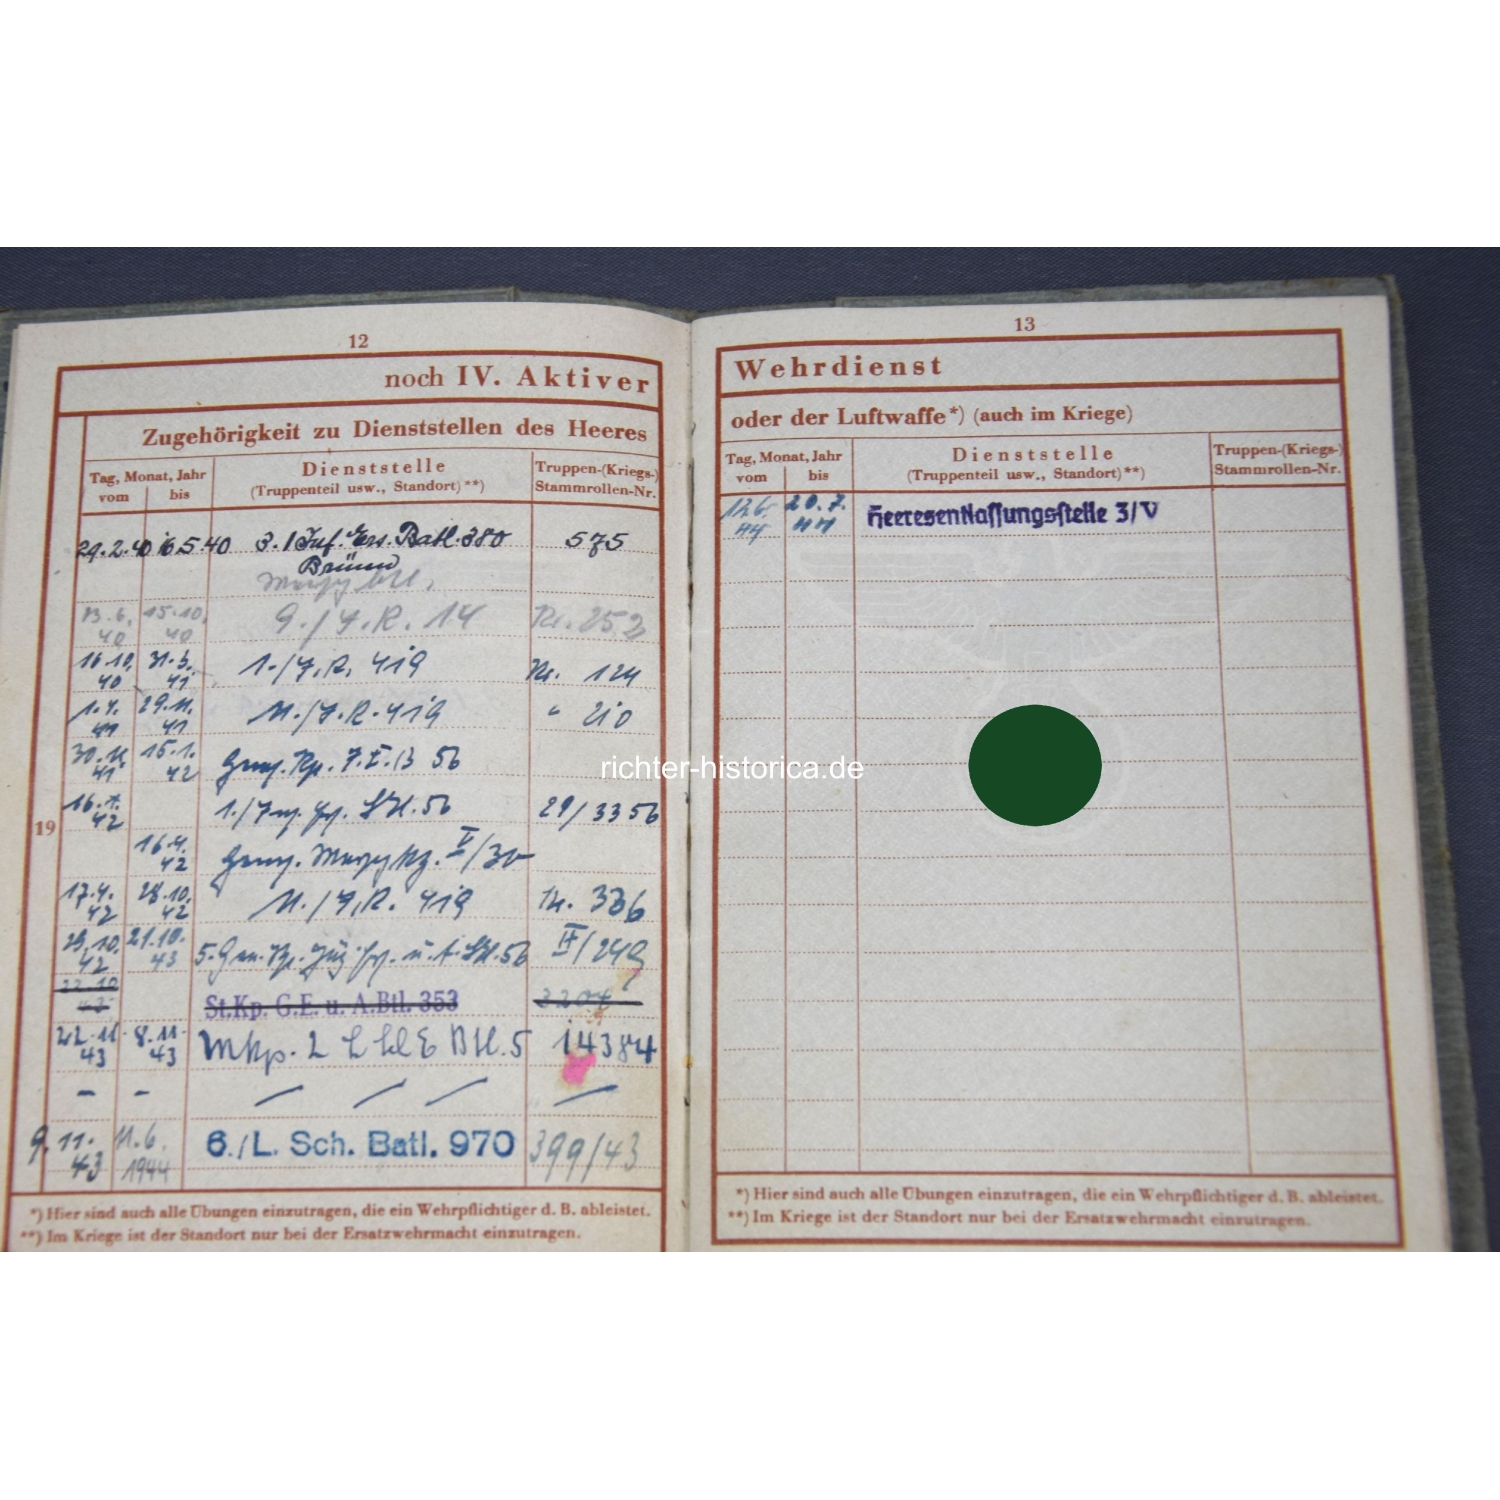 12
noch IV. Aktiver
Zugehörigkeit zu Dienststellen des Heeres
Tag, Monat, Jahr
vom bis
Dienststelle
(Truppenteil usw., Standort)**)
Truppen-(Kriegs-)
Stammrollen-Nr.
29.2.40 16.5.40 3./Inf.Ers.Batl.380 575
Brünn
13.6. 15.10. 9./I.R. 14 Nr. 252
40 40
16.10. 31.3. 1./I.R. 419 Nr. 124
40 41
1.4. 29.11. 11./I.R. 419 " 210
41 41
30.11. 15.1. Genes. Kp. I.E.B 56
41 42
16.1. 1./ 56 29/3356
42
19
16.4. V/30
42
17.4. 28.10. 11./I.R. 419 Nr. 336
42 42
29.10. 21.10. 5. Gen. Kp. 56 II/249
42 43
22.10 St.Kp. G.E. u. A.Btl. 353 3204
43
22.11. 8.11. Mkp. 2 Btl. 5 14384
43 43
— — — — — —
9.11. 11.6. 6./L. Sch. Batl. 970 399/43
43 1944
*) Hier sind auch alle Übungen einzutragen, die ein Wehrpflichtiger d. B. ableistet.
**) Im Kriege ist der Standort nur bei der Ersatzwehrmacht einzutragen.
13
Wehrdienst
oder der Luftwaffe*) (auch im Kriege)
Tag, Monat, Jahr
vom bis
Dienststelle
(Truppenteil usw., Standort)**)
Truppen-(Kriegs-)
Stammrollen-Nr.
12.6. 20.7. Heeresentlassungsstelle 3/V
44 44
*) Hier sind auch alle Übungen einzutragen, die ein Wehrpflichtiger d. B. ableistet.
**) Im Kriege ist der Standort nur bei der Ersatzwehrmacht einzutragen.
richter-historica.de